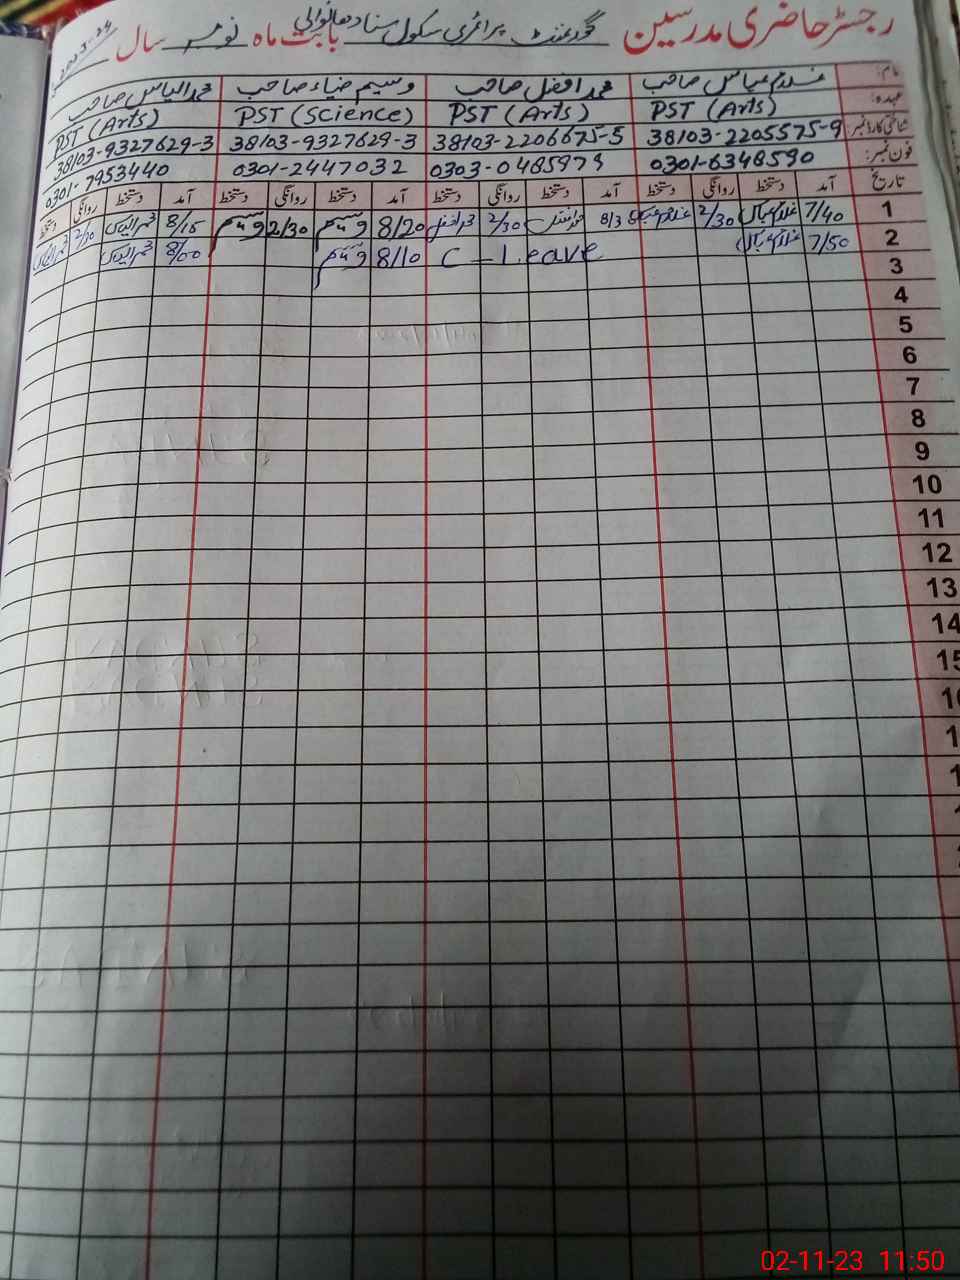 رجسٹر حاضری مدرسین گورنمنٹ پرائمری سکول بابت ماہ نومبر سال 2023-24
نام: غلام عباس صاحب محمد افضل صاحب وسیم ضیاء صاحب محمد الیاس صاحب
عہدہ: PST (Arts) PST (Arts) PST (Science) PST (Arts)
شناختی کارڈ نمبر: 38103-2205575-9 38103-2206675-5 38103-9327629-3 38103-9327629-3
فون نمبر: 0301-6348590 0303-0485979 0301-2447032 0301-7953440
تاریخ آمد دستخط روانگی دستخط آمد دستخط روانگی دستخط آمد دستخط روانگی دستخط آمد دستخط روانگی دستخط
1 7/40 غلام عباس 2/30 غلام عباس 8/3 محمد افضل 2/30 محمد افضل 8/20 وسیم 2/30 وسیم 8/15 محمد الیاس 2/30 محمد الیاس
2 7/50 غلام عباس C-Leave 8/10 وسیم 8/00 محمد الیاس
3
4
5
6
7
8
9
10
11
12
13
14
02-11-23 11:50